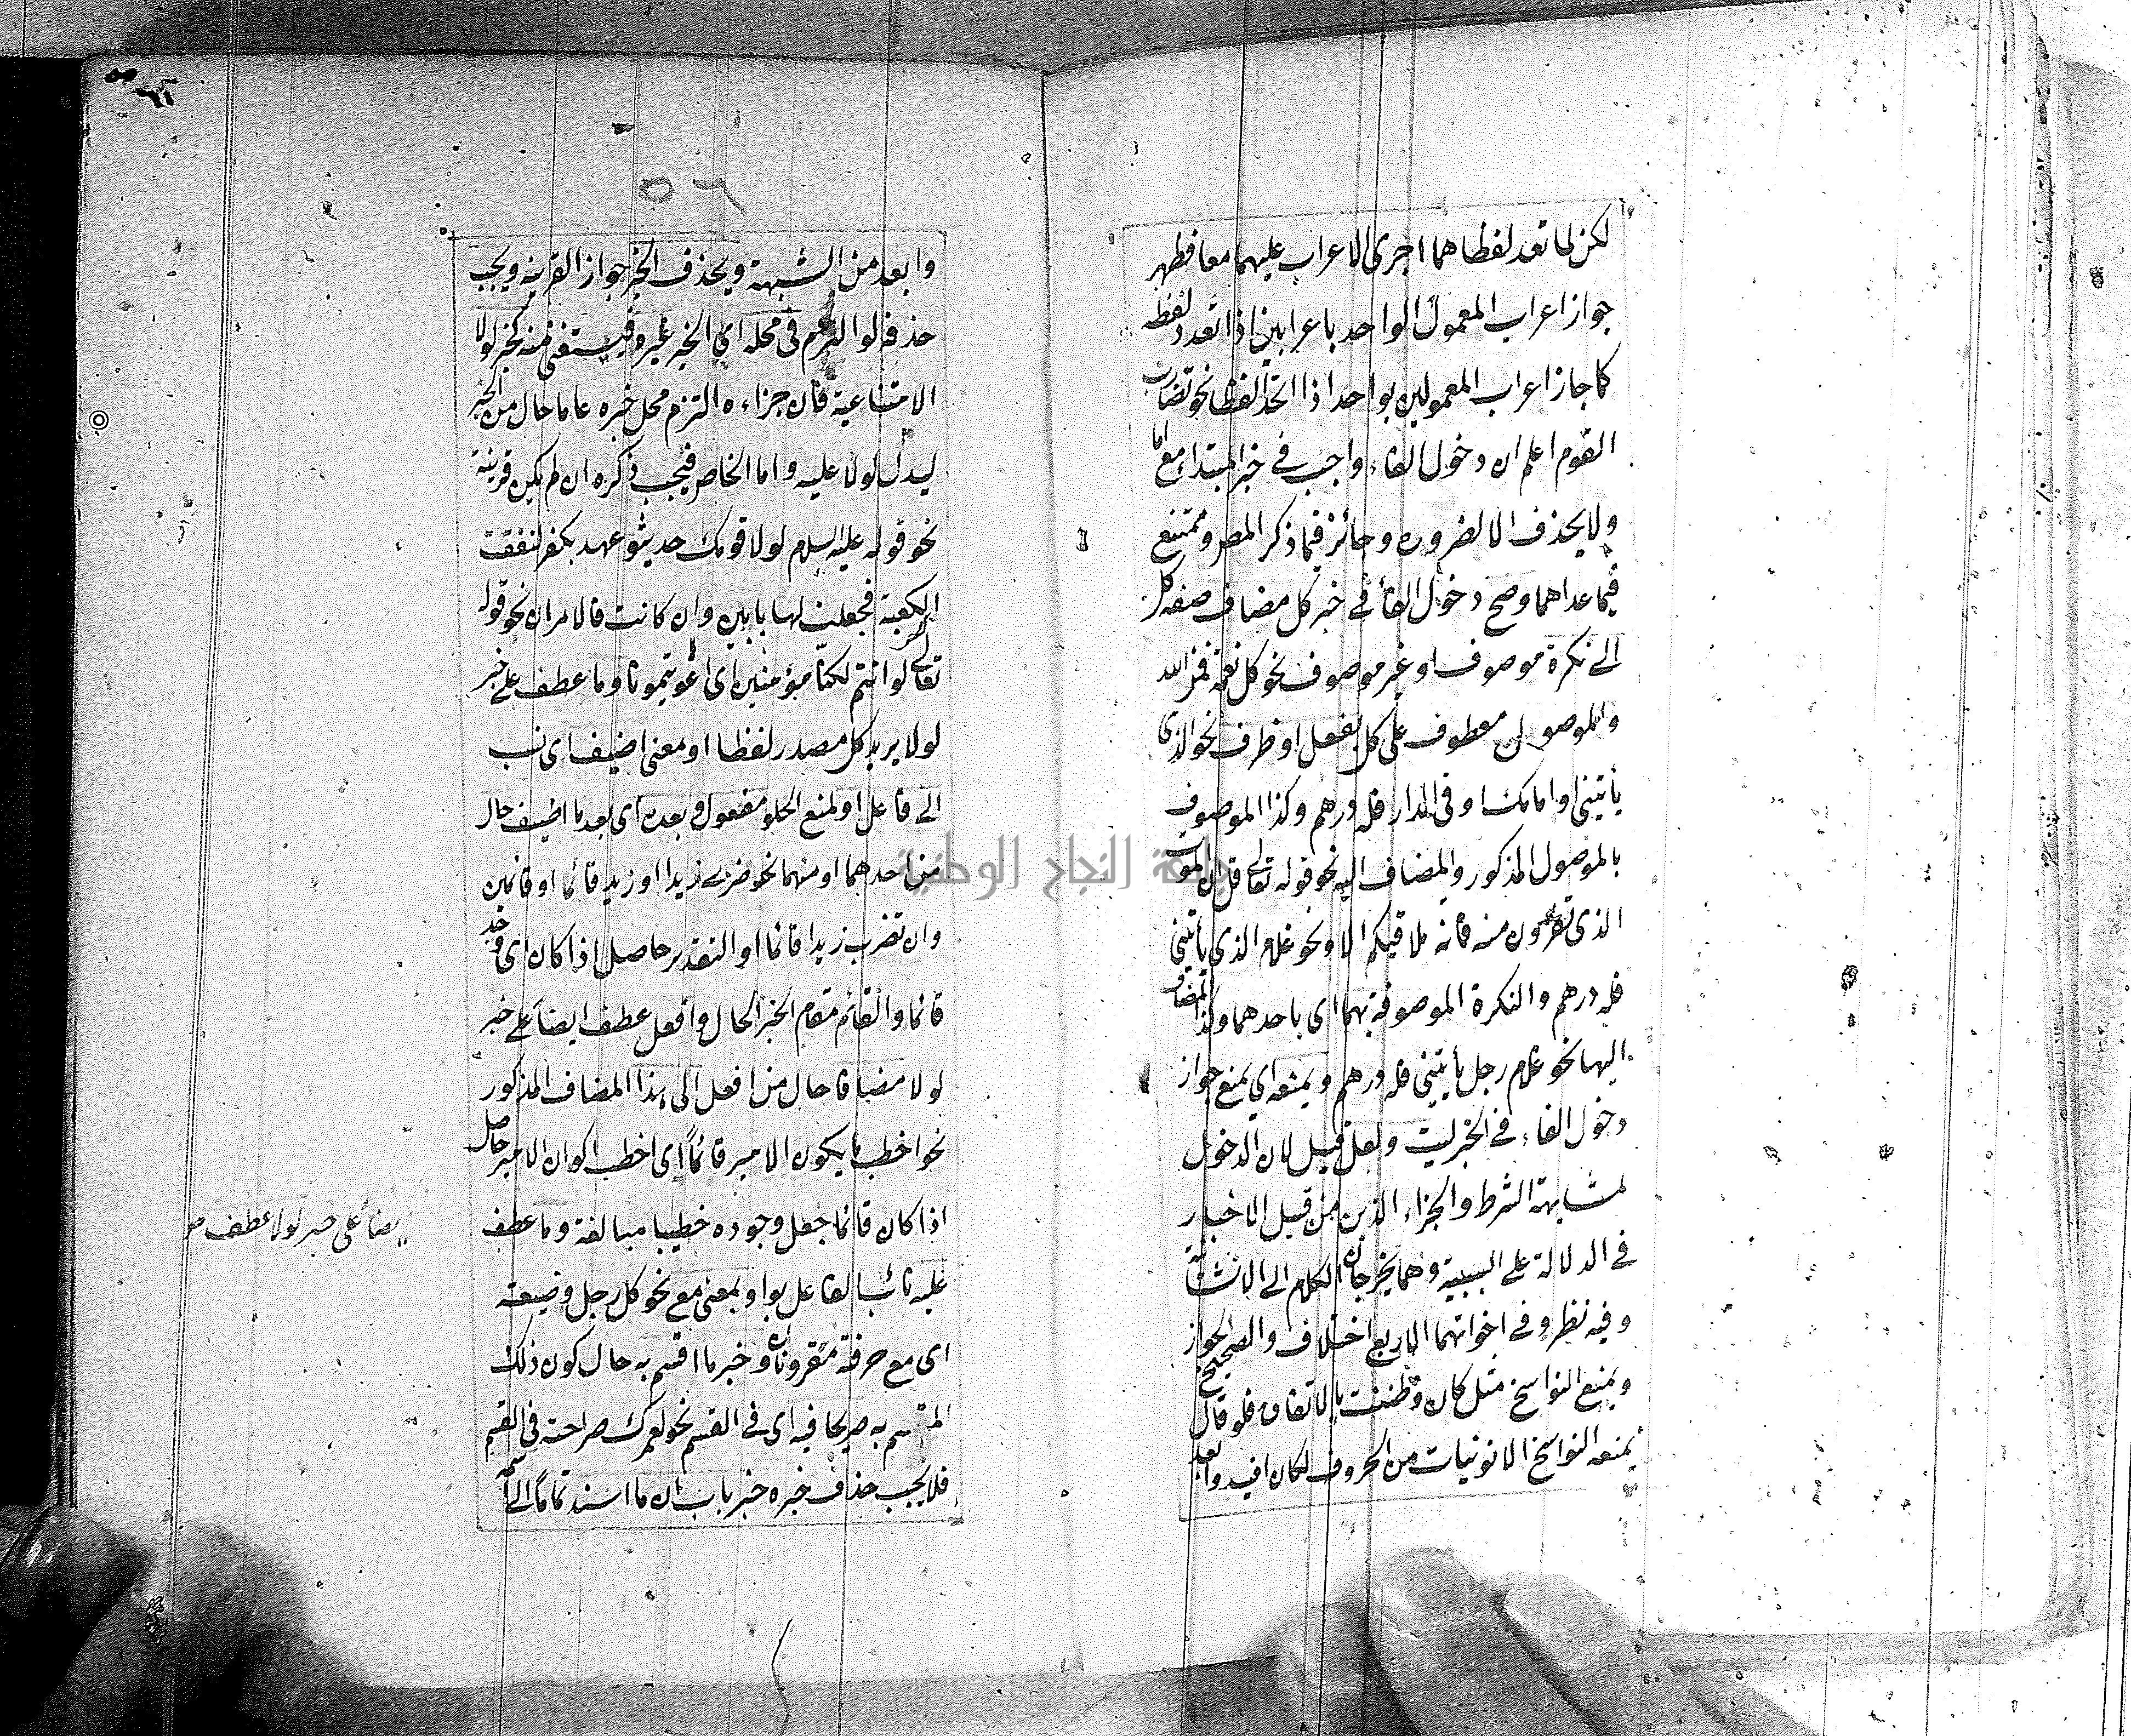 لكن لما تعدد لفظا هما اجرى الاعراب عليهما معا فظهر
جواز اعراب المعمول الواحد باعرابين اذا تعدد لفظه
كما جاز اعراب المعمولين بواحد اذا اتحد لفظا نحو تضارب
القوم اعلم ان دخول الفاء واجب في خبر المبتداء مع اما
ولا يحذف الا لضرورة وجائز فيما ذكر المصر وممتنع
فيما عداهما وصح دخول الفاء في خبر كل مضاف صفة كل
الى نكرة موصوف او غير موصوف نحو كل نعمة فمن الله
والموصول معطوف على كل بفعل او ظرف نحو الذى
يأتينى او امامك او فى الدار فله درهم وكذا الموصوف
بالموصول المذكور والمضاف اليه نحو قوله تعالى قل ان الموت
الذى تفرون منه فانه ملاقيكم الا ونحو غلام الذى يأتينى
فله درهم والنكرة الموصوفة بهما اى باحدهما وكذا المضاف
اليها نحو غلام رجل يأتينى فله درهم ويمنعه اي يمنع جواز
دخول الفاء في الخبر ليت ولعل قيل لان الدخول
لمشابهة الشرط والجزاء الذين من قبيل الاخبار
في الدلالة على السببية وهما يخرجان الكلام الى الانشائية
وفيه نظر وفي اخواتهما الاربع اختلاف والصحيح الجواز
ويمنع النواسخ مثل كان وظننت بالاتفاق فلو قال
يمنعه النواسخ الا نونيات من الحروف لكان افيد وابعد
٥٦
وابعد من الشبهة ويحذف الخبر جوازا لقرينه ويجب
حذفه لو التزم فى محله اي الخبر غيره فيستغنى منه كخبر لولا
الامتناعية فان جزاءه التزم محل خبره عاما حال من الخبر
ليدل لولا عليه واما الخاص فيجب ذكره ان لم يكن قرينة
نحو قوله عليه السلام لولا قومك حديثو عهد بكفر لنقضت
الكعبة فجعلت لها بابين وان كانت فالامران نحو قوله
تعالى لولا انتم لكنا مؤمنين اى اغويتمونا وما عطف على خبر
لولا يريد كل مصدر لفظا او معنى اضيف اى نسب
الى فاعل او لمنع الخلو مفعول وبعده اى بعد ما اضيف حال
من احدهما او منهما نحو ضربى زيدا او زيد قائما او قائمين
وان تضرب زيدا قائما او التقدير حاصل اذا كان اى وجد
قائما والقائم مقام الخبر الحال وافعل عطف ايضا على خبر
لولا مضافا حال من افعل الى هذا المضاف المذكور
نحو اخطب ما يكون الامير قائماً اى اخطب اكوان الامير حاصل
اذا كان قائما جعل وجوده خطيبا مبالغة وما عطف
عليه نائب الفاعل بواو بمعنى مع نحو كل رجل وضيعته
اى مع حرفته مقرونان وخبر ما اقسم به حال كون ذلك
المقسم به صريحا فيه اى في القسم نحو لعمرك صراحته فى القسم
فلا يجب حذف خبره خبر باب ان ما اسند تماما الى اسمه
يضا على خبر لولا عطف
جامعة النجاح الوطنية